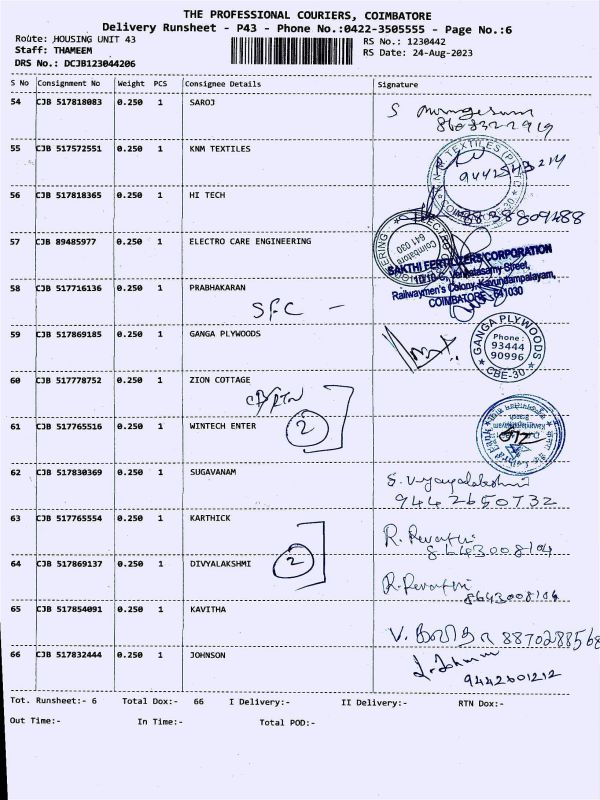 THE PROFESSIONAL COURIERS, COIMBATORE
Delivery Runsheet - P43 - Phone No.:0422-3505555 - Page No.:6
Route: HOUSING UNIT 43
RS No.: 1230442
Staff: THAMEEM
RS Date: 24-Aug-2023
DRS No.: DCJB123044206
S No Consignment No Weight PCS Consignee Details Signature
54 CJB 517818083 0.250 1 SAROJ
S
55 CJB 517572551 0.250 1 KNM TEXTILES
56 CJB 517818365 0.250 1 HI TECH
57 CJB 89485977 0.250 1 ELECTRO CARE ENGINEERING
Coimbatore
641 030
SAKTHI FERTILIZERS CORPORATION
Railwaymen's Colony, Kavundampalayam,
COIMBATORE 641030
58 CJB 517716136 0.250 1 PRABHAKARAN
SFC -
59 CJB 517869185 0.250 1 GANGA PLYWOODS
GANGA PLYWOODS
Phone:
93444
90996
CBE-30
60 CJB 517778752 0.250 1 ZION COTTAGE
61 CJB 517765516 0.250 1 WINTECH ENTER
2
62 CJB 517830369 0.250 1 SUGAVANAM
9442650732
63 CJB 517765554 0.250 1 KARTHICK
R. Revathi
8643008104
2
64 CJB 517869137 0.250 1 DIVYALAKSHMI
R. Revathi
8643008104
65 CJB 517854091 0.250 1 KAVITHA
V. கவிதா 8870288568
66 CJB 517832444 0.250 1 JOHNSON
9442601212
Tot. Runsheet:- 6 Total Dox:- 66 I Delivery:- II Delivery:- RTN Dox:-
Out Time:- In Time:- Total POD:-